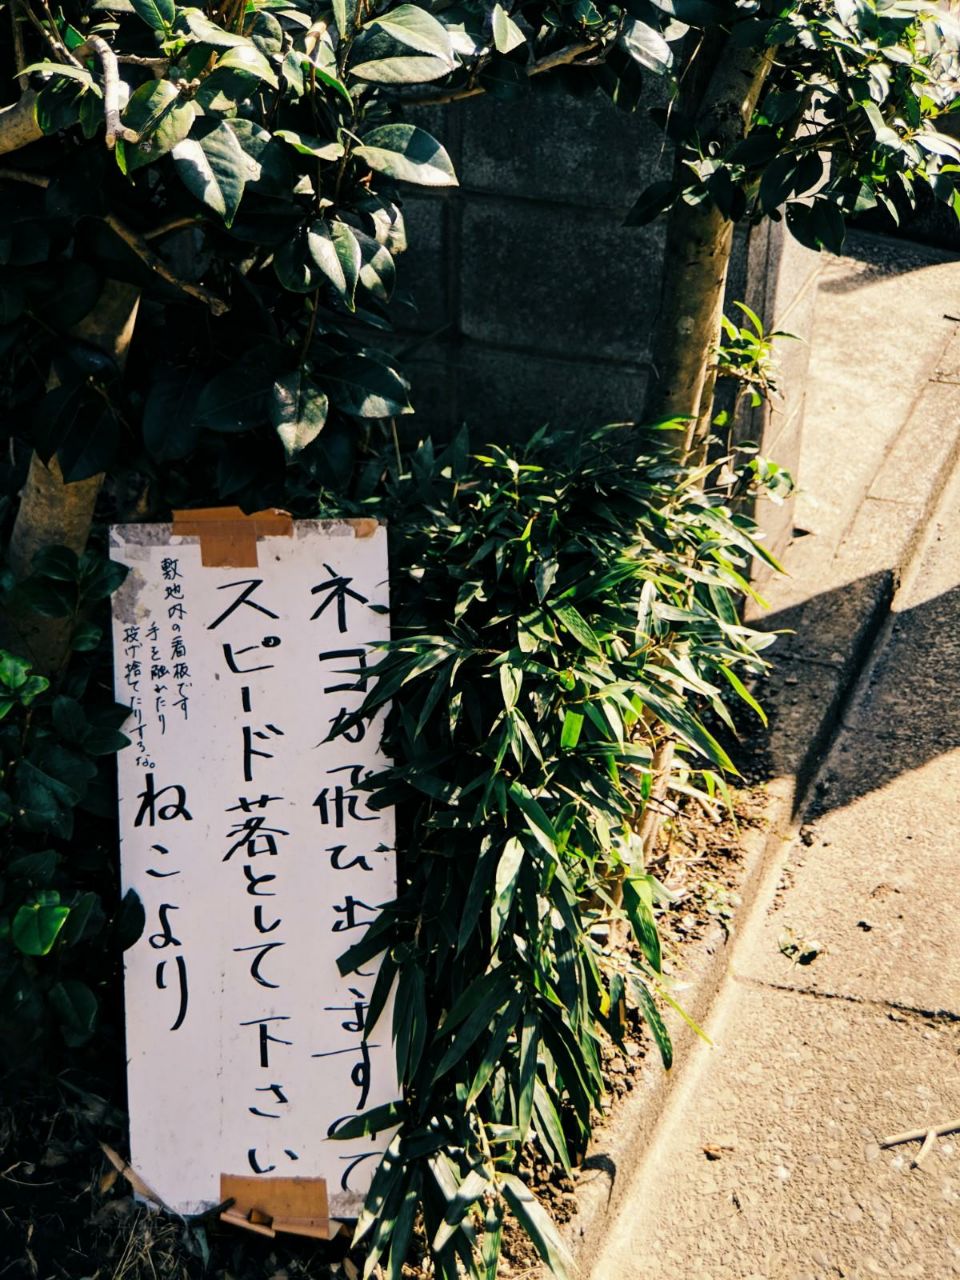 ネコが飛び出てますので
スピード落として下さい
ねこより
敷地内の看板です
手を触れたり
投げ捨てたりするな。